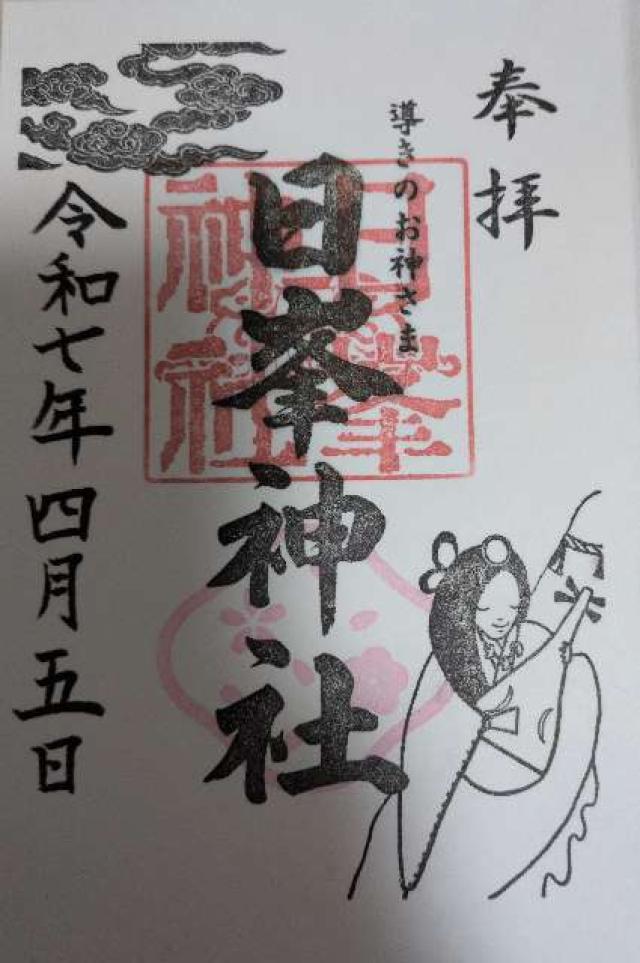 奉拝
導きのお神さま
日峯神社
日峯神社
令和七年四月五日